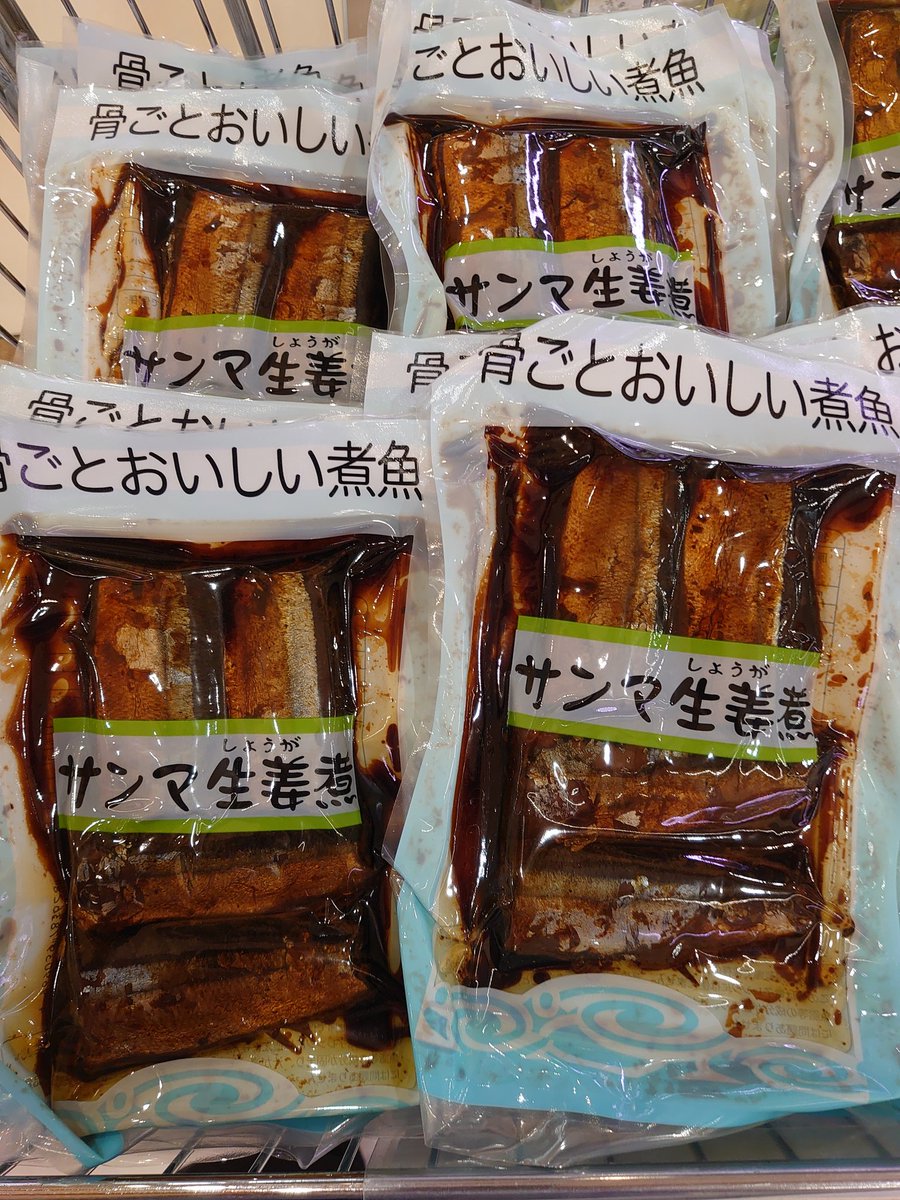 骨ごとおいしい煮魚
骨ごとおいしい
ごとおいしい煮魚
サンマ
しょうが
サンマ生姜煮
しょうが
サンマ生姜
骨
骨ごとおいしい煮魚
骨ごとおいしい
ごとおいしい煮魚
しょうが
サンマ生姜煮
しょうが
サンマ生姜煮